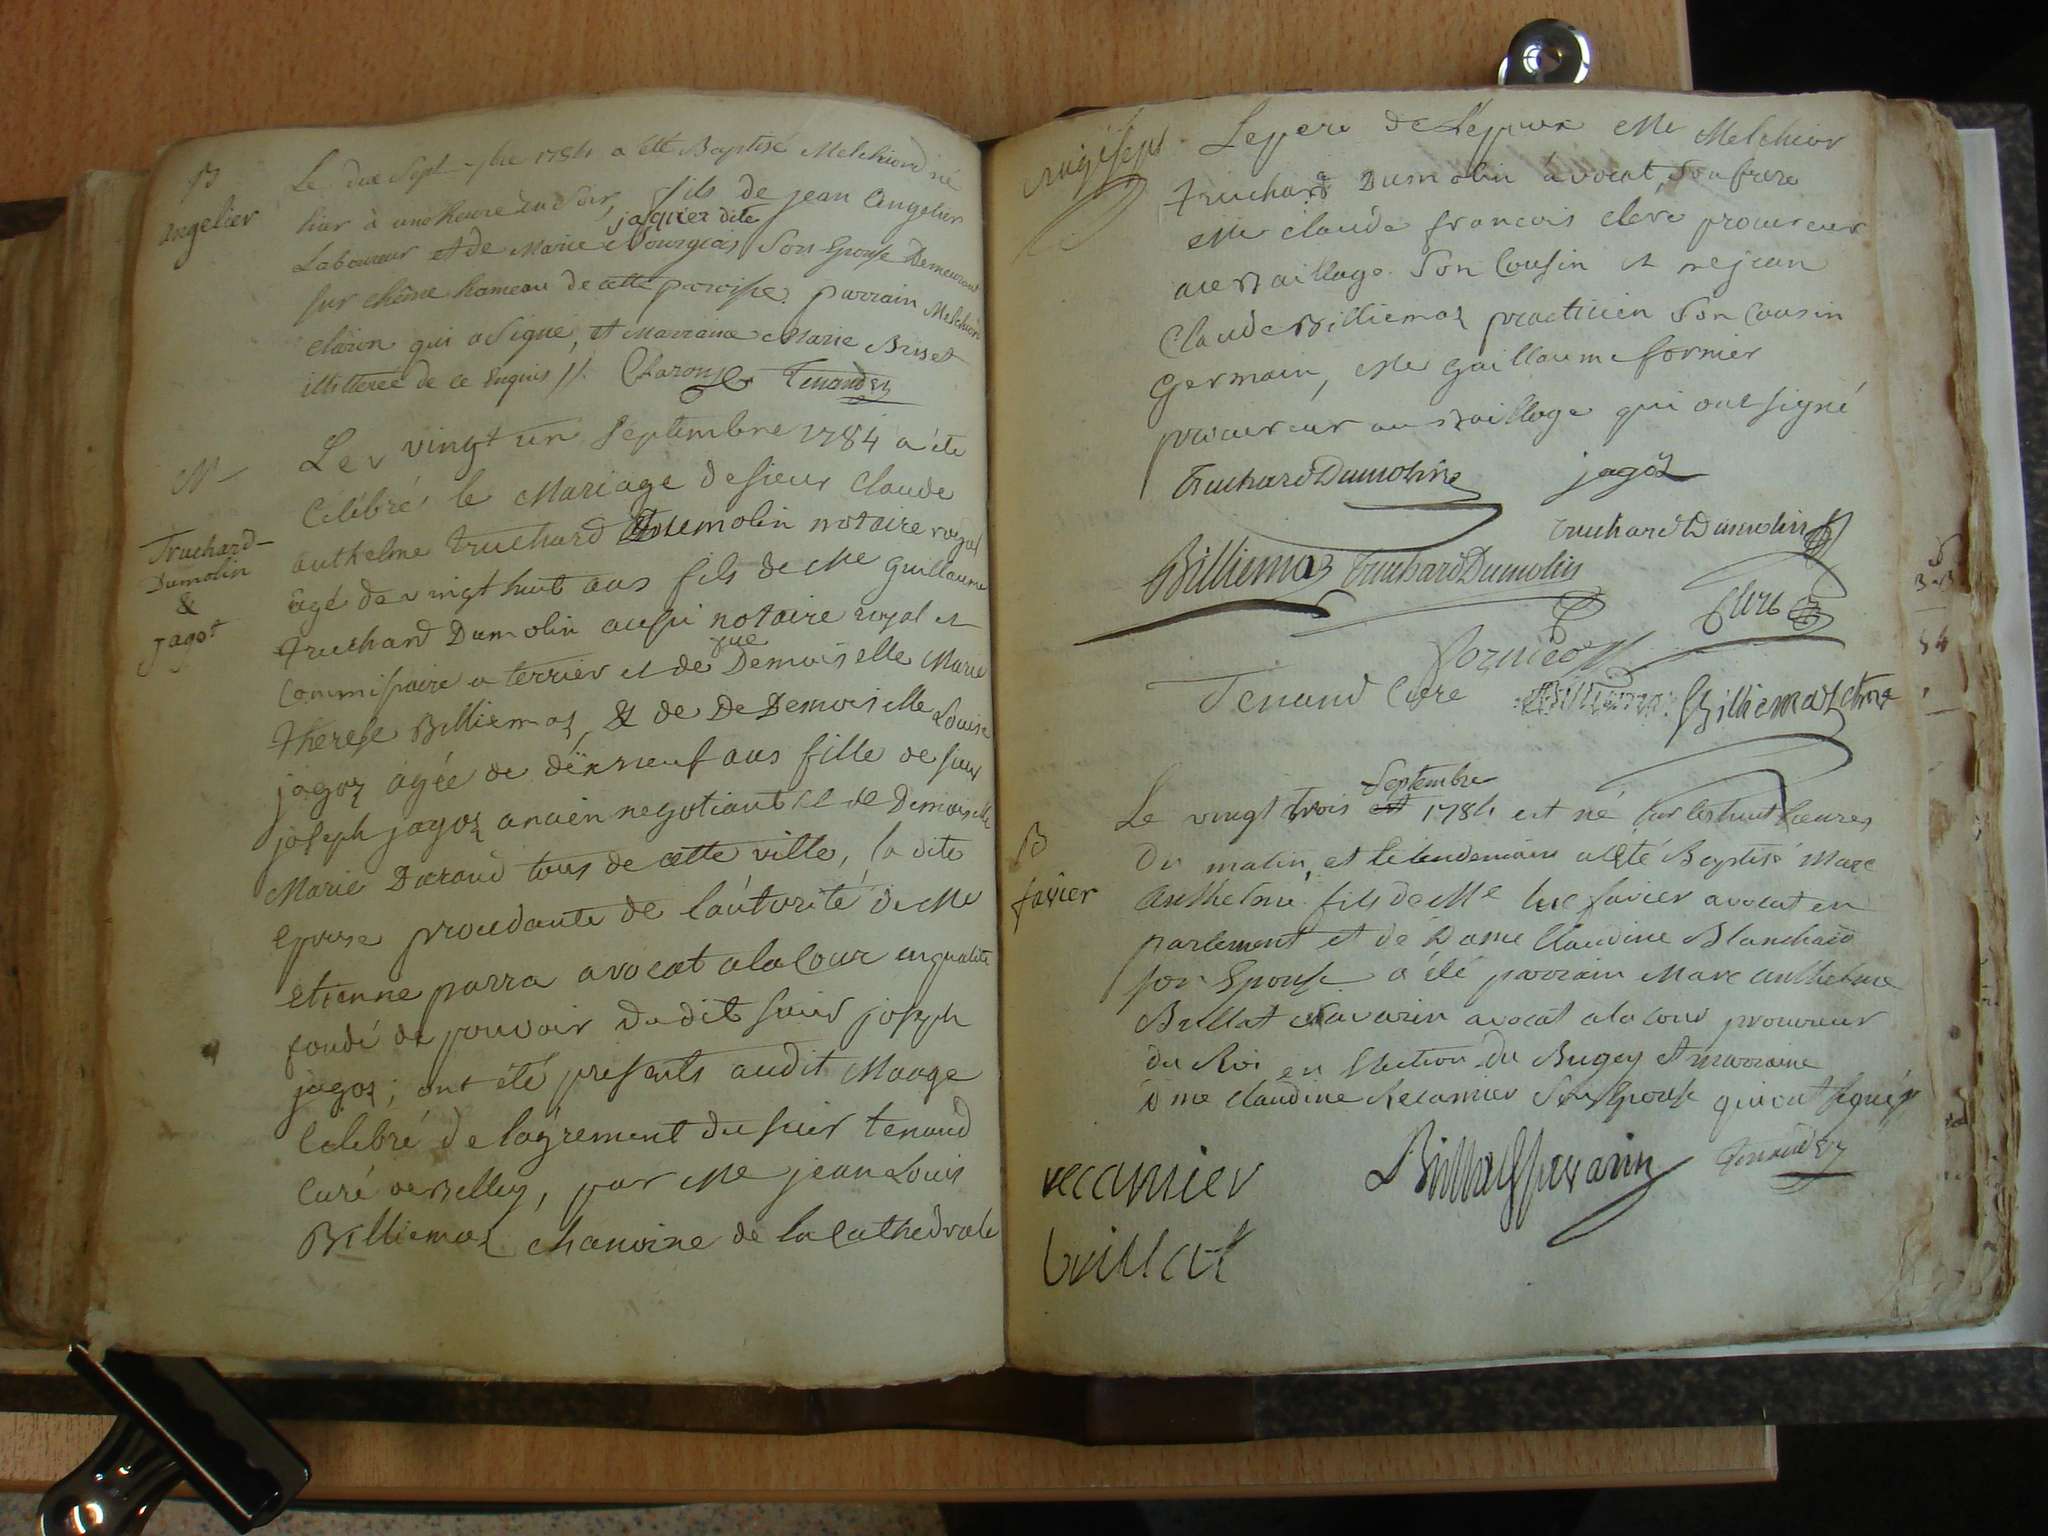 B
angelier
Le dix Sept. bre 1784 a été Baptisé Melchiord né
hier à une heure du Soir, fils de jean Angelier
jaquier dite
Laboureur et de Marie Bourgeois Son Epouse Demeurant
sur chême hameau de cette paroisse. parrain Melchior
claron qui a Signé, et Marraine Marie Brunet
illitterée de ce Enquis //. Charon Tenand
M
Truchard-
Dumolin
&
Jagot
Le vingt un Septembre 1784 a été
Célébré le Mariage de sieur Claude
anthelme truchard Dumolin notaire royal
âgé de vingt huit ans fils de Me Guillaume
truchard Dumolin aussi notaire royal et
commissaire a terrier et de feue Demoiselle Marie
therese Billiemaz, & de De Demoiselle Louise
jagoz agée de dixneuf ans fille de sieur
joseph jagoz ancien negotiant et de Demoiselle
Marie Durand tous de cette ville, la dite
epouse procedante de l'autorité de Me
etienne parra avocat a la Cour en qualité
fondé de pouvoir du dit sieur joseph
jagoz; ont été presents audit Mariage
Celebré de l'agrement du sieur tenand
Curé de Belley, par Me jean Louis
Billiemaz chanoine de la Cathedrale
vingt sept
Le pere de l'epoux Me Melchior
truchard Dumolin avocat, son frere
Me claude francois clerc procureur
au Baillage Son Cousin et Me jean
Claude Billiemaz practicien Son Cousin
Germain, Me Guillaume fornier
procureur au Baillage qui ont signé
Truchard Dumolin jagoz
truchard Dumolin
Billiemaz Truchard Dumolin
Clerc
Fornier
Tenand Curé Billiemaz chne
B
favier
Septembre
Le vingt trois 1784 est né sur les huit heures
du matin, et le lendemain a été Baptisé Marc
Anthelme fils de Me luc favier avocat en
parlement et de Dame Claudine Blanchard
son Epouse a été parrain Marc anthelme
Brillat Savarin avocat a la cour procureur
du Roi en l'election du Bugey et marraine
Dme Claudine Recamier Son Epouse qui ont signés
Brillat Savarin Tenand
recamier
brillat